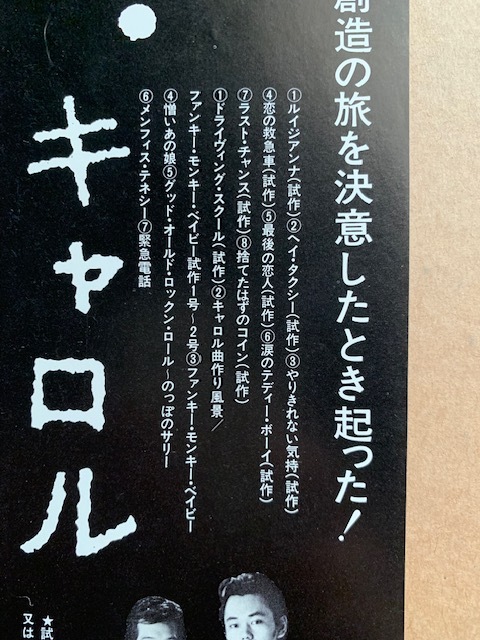 創造の旅を決意したとき起った!
①ルイジアンナ(試作)②ヘイ・タクシー(試作)③やりきれない気持(試作)
④恋の救急車(試作)⑤最後の恋人(試作)⑥涙のテディー・ボーイ(試作)
⑦ラスト・チャンス(試作)⑧捨てたはずのコイン(試作)
①ドライヴィング・スクール(試作)②キャロル曲作り風景/
ファンキー・モンキー・ベイビー試作1号〜2号③ファンキー・モンキー・ベイビー
④憎いあの娘⑤グッド・オールド・ロックン・ロール〜のっぽのサリー
⑥メンフィス・テネシー⑦緊急電話
・キャロル
★試
又は